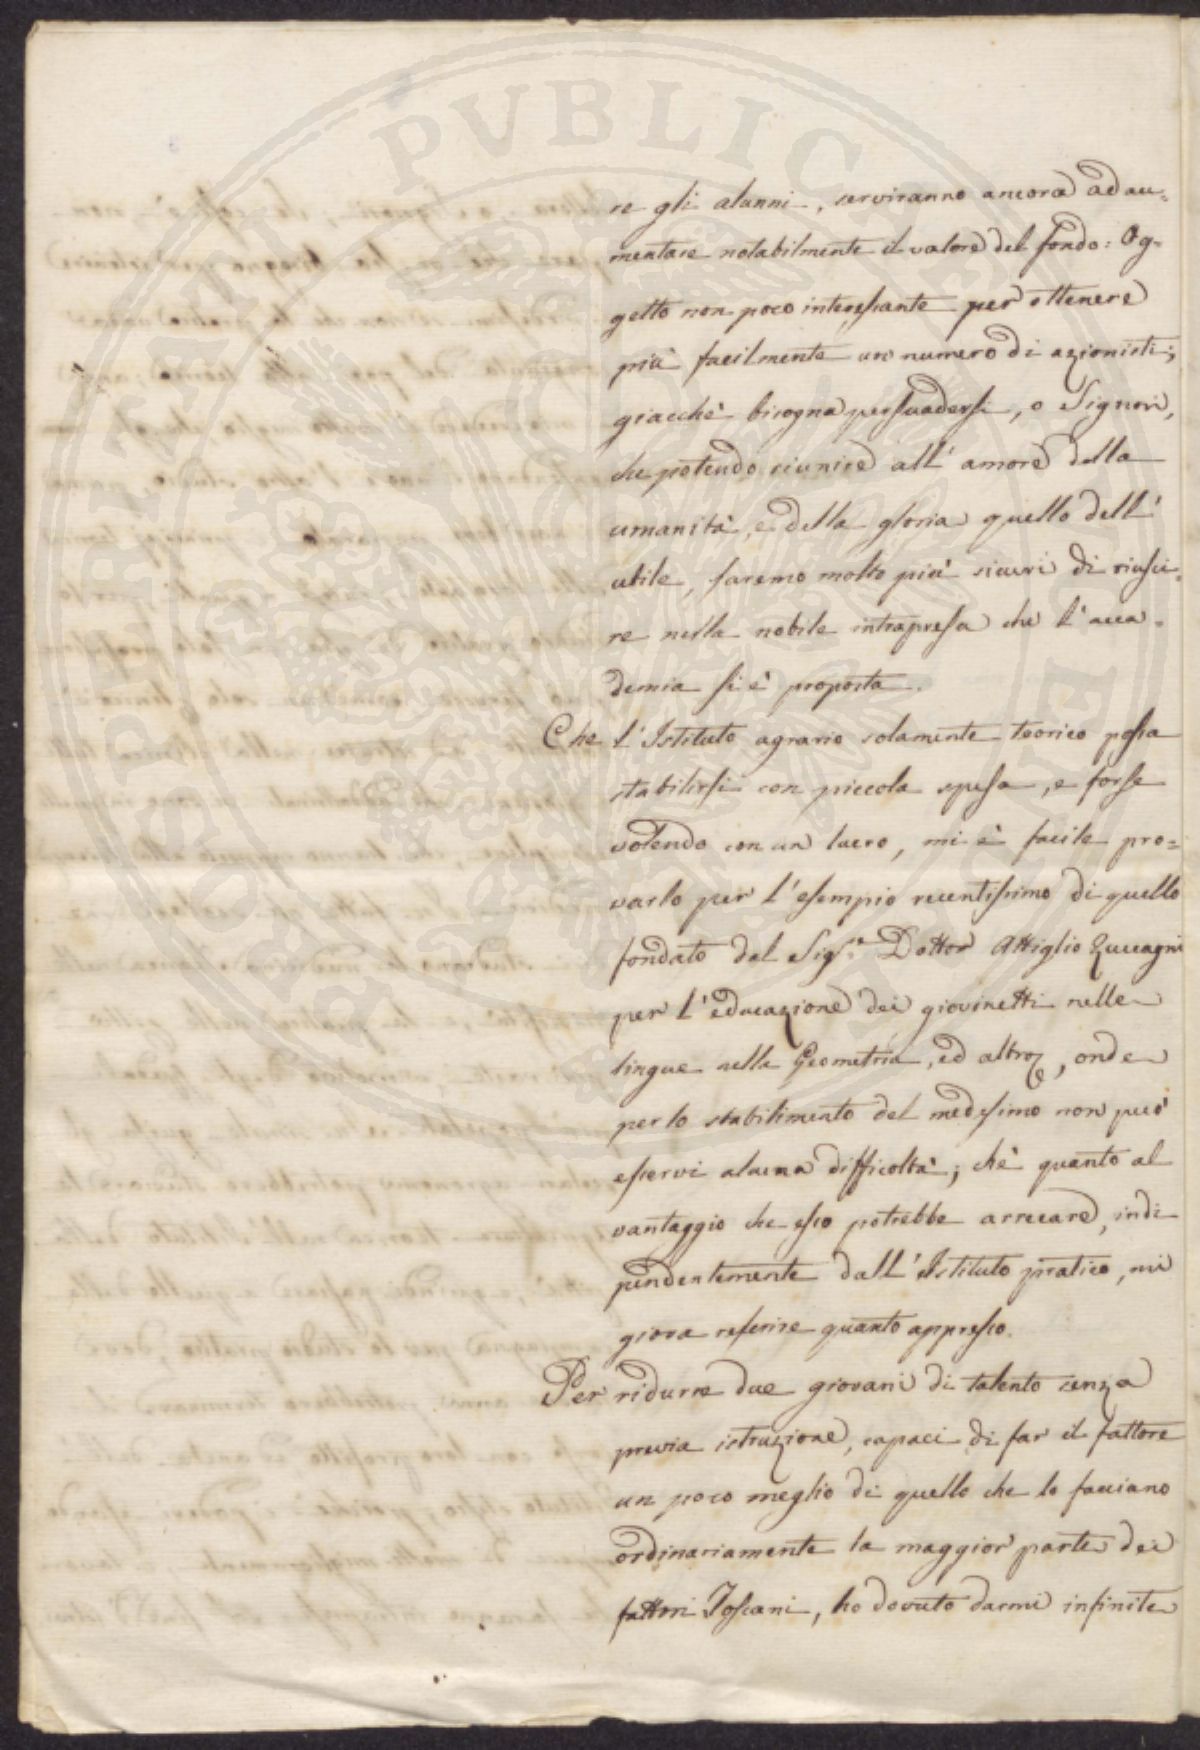 re gli alunni, serviranno ancora ad au=
mentare notabilmente il valore del fondo: Og=
getto non poco interessante per ottenere
più facilmente un numero di azionisti;
giacchè bisogna persuadersi, o Signori,
che potendo riunire all' amore della
umanità, e della gloria quello dell'
utile, saremo molto più sicuri di riusci=
re nella nobile intrapresa che l'acca=
demia si è proposta.
Che l'Istituto agrario solamente teorico possa
stabilirsi con piccola spesa, e forse
volendo con un lucro, mi è facile pro=
varlo per l'esempio recentissimo di quello
fondato dal Sig.r Dottor Attiglio Zuccagni
per l'educazione dei giovinetti nelle
lingue nella Geometria, ed altro, onde
per lo stabilimento del medesimo non può
esservi alcuna difficoltà; chè quanto al
vantaggio che esso potrebbe arrecare, indi
pendentemente dall'Istituto pratico, mi
giova referire quanto appresso.
Per ridurre due giovani di talento senza
previa istruzione, capaci di far il fattore
un poco meglio di quello che lo facciano
ordinariamente la maggior parte dei
fattori Toscani, ho dovuto darmi infinite